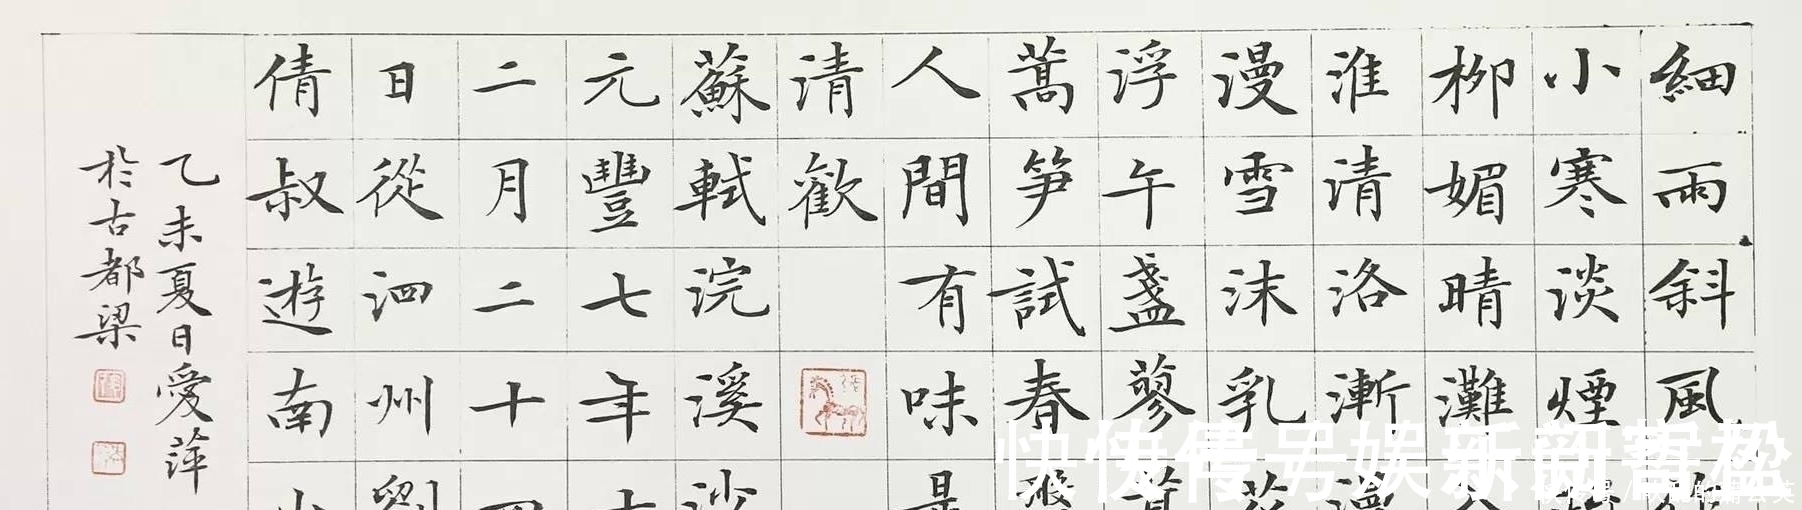 細雨斜風
小寒淡煙
柳媚晴灘入
淮清洛漸漫
漫雪沫乳花
浮午盞蓼茸
蒿笋試春盤
人間有味是
清歡
蘇軾浣溪沙
元豐七年十
二月二十四
日從泗州劉
倩叔遊南山
乙未夏日愛萍
於古都梁